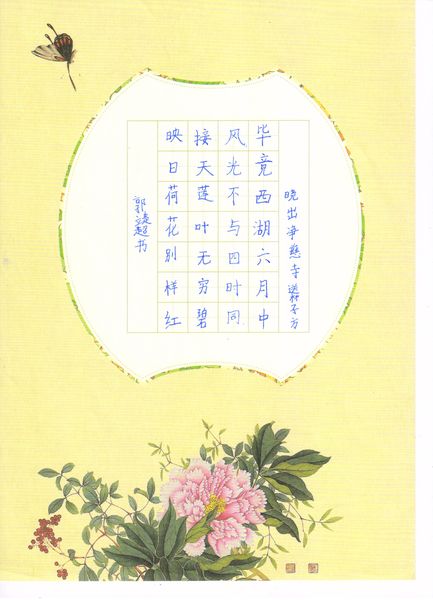 晓出净慈寺送林子方
毕竟西湖六月中
风光不与四时同
接天莲叶无穷碧
映日荷花别样红
郭超书